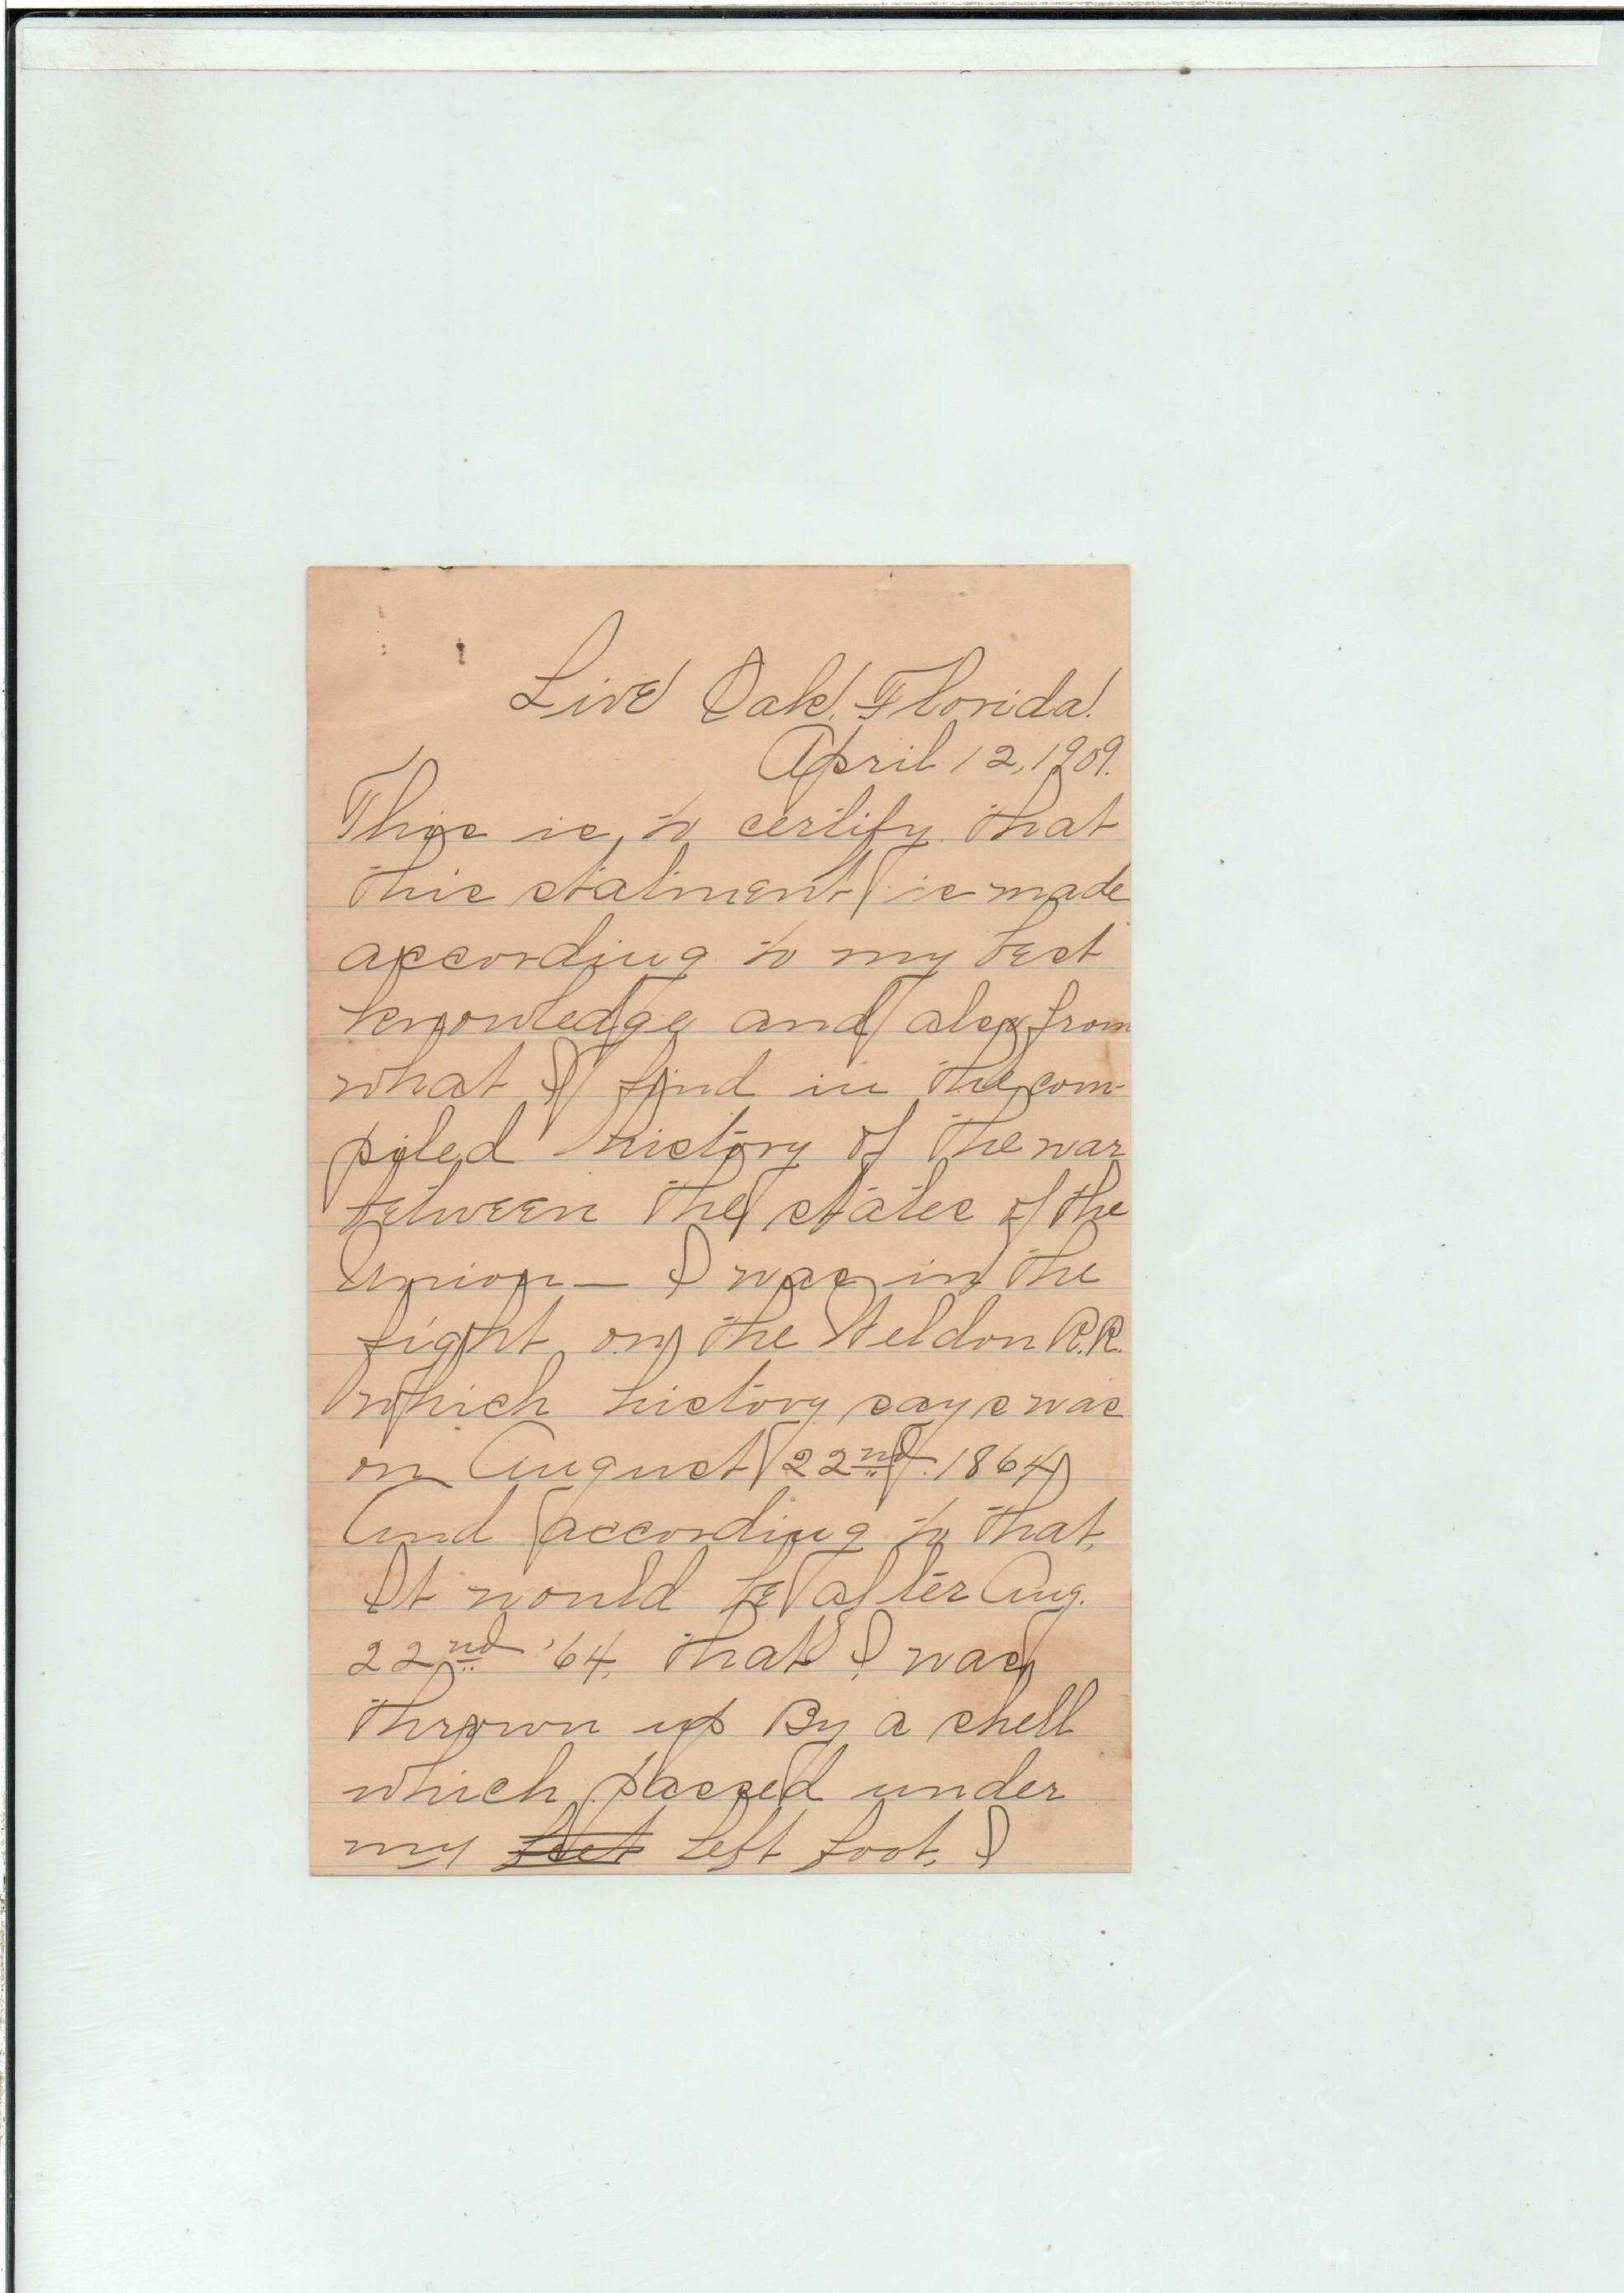 Live Oak, Florida.
April 12, 1909.
This is to certify that
this statment is made
according to my best
knowledge and also from
what I find in the com-
piled history of the war
between the states of the
Union — I was in the
fight on the Weldon R.R.
which history says was
on August 22nd 1864
And according to that,
It would be after Aug.
22nd '64, that I was
thrown up By a shell
which passed under
my feet left foot, I